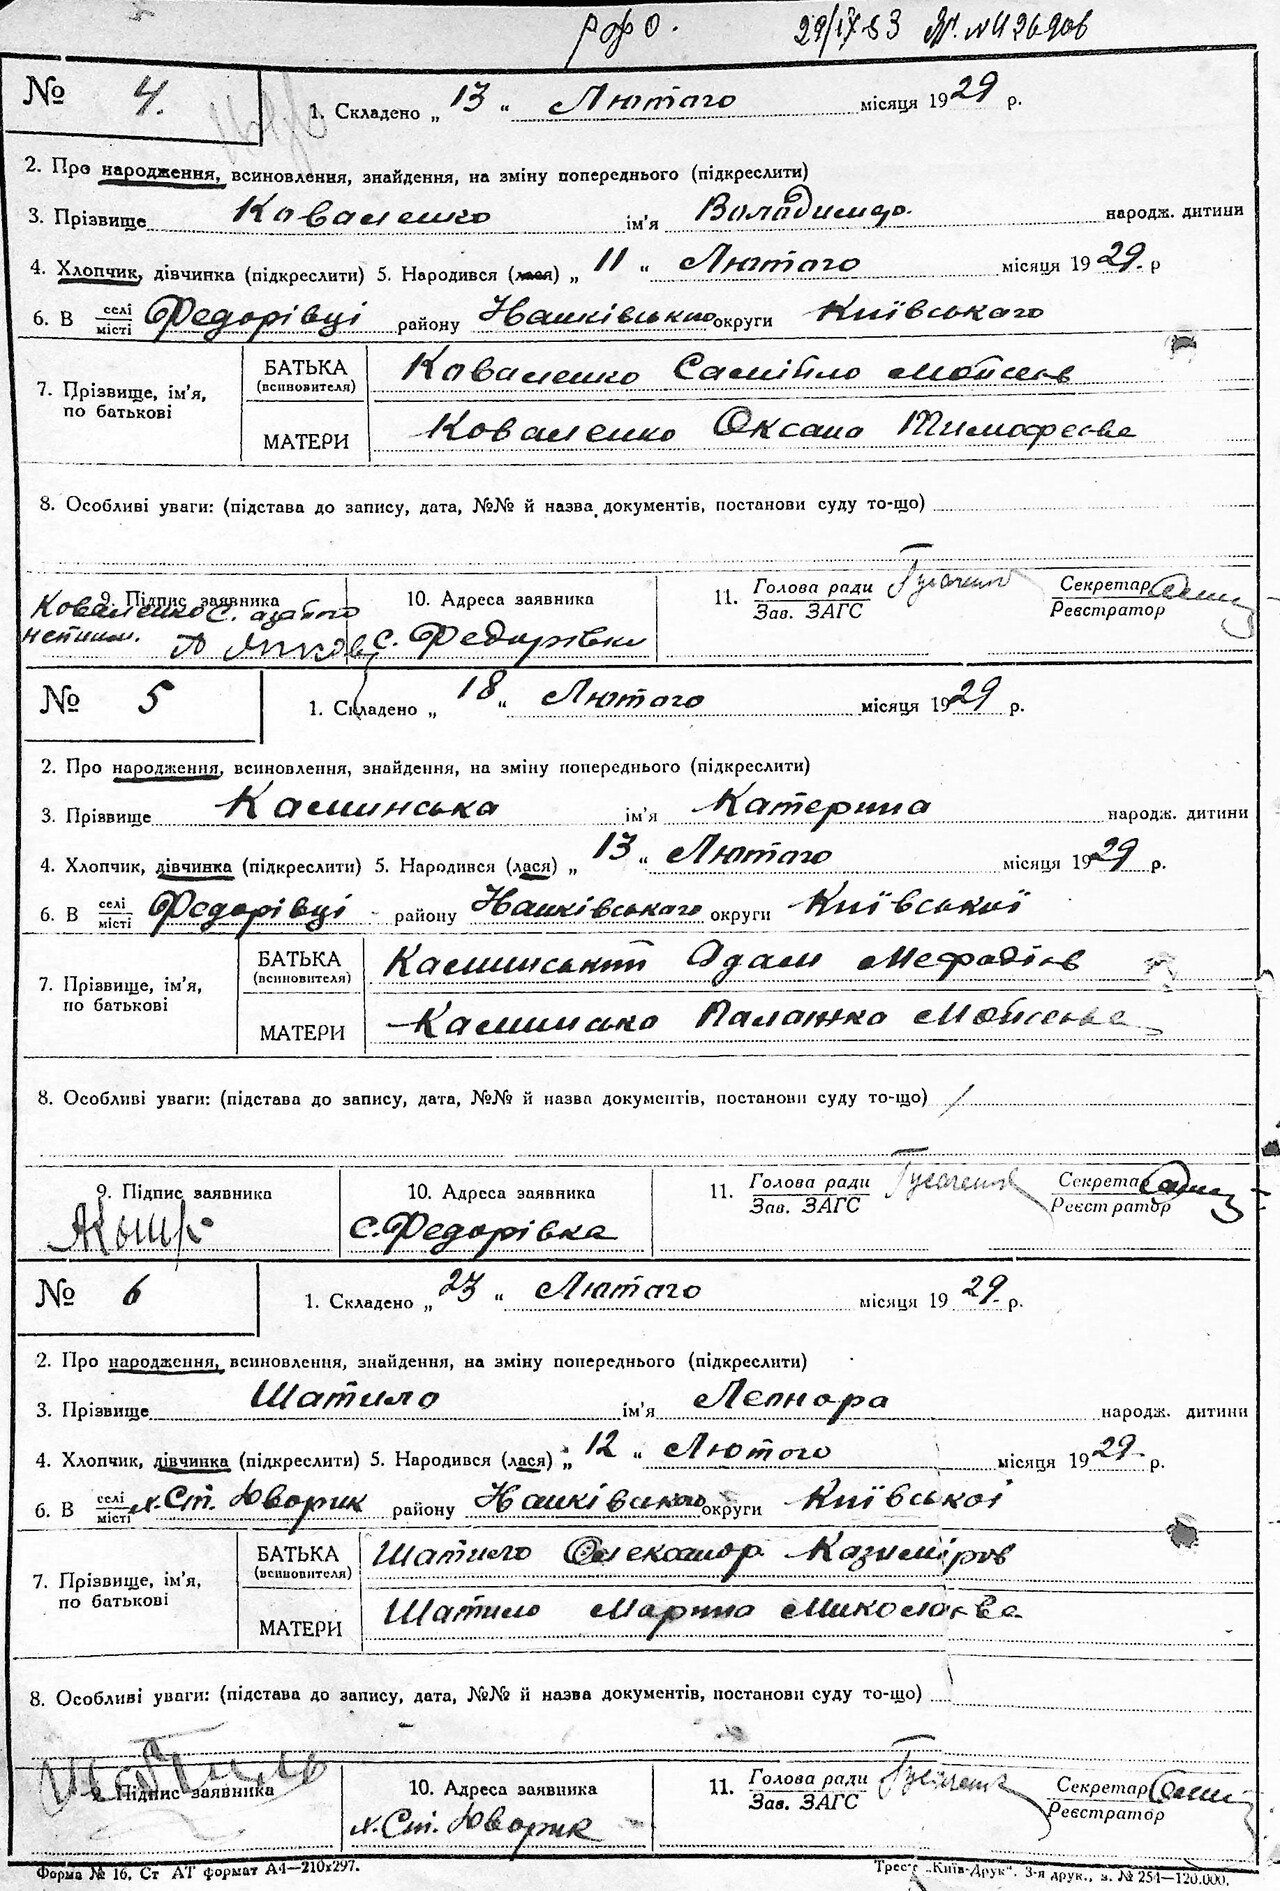 рфо. 29/IX-83
№ 4. 1. Складено „ 13 “ Лютаго місяця 1929 р.
2. Про народження, всиновлення, знайдення, на зміну попереднього (підкреслити)
3. Прізвище Коваленко ім'я Володимир. народж. дитини
4. Хлопчик, дівчинка (підкреслити) 5. Народився (лася) „ 11 “ Лютаго місяця 1929. р
6. В селі/місті Федорівці району Наиківського округи Київського
7. Прізвище, ім'я, по батькові
БАТЬКА (всиновителя) Коваленко Самійло Мойсеєв
МАТЕРИ Коваленко Оксана Тимофеєва
8. Особливі уваги: (підстава до запису, дата, №№ й назва документів, постанови суду то-що)
9. Підпис заявника 10. Адреса заявника 11. Голова ради Секретар
Зав. ЗАГС Реєстратор
Коваленко С.
с. Федорівки
№ 5 1. Складено „ 18 “ Лютаго місяця 1929 р.
2. Про народження, всиновлення, знайдення, на зміну попереднього (підкреслити)
3. Прізвище Каминська ім'я Катерина народж. дитини
4. Хлопчик, дівчинка (підкреслити) 5. Народився (лася) „ 13 “ Лютаго місяця 1929 р.
6. В селі/місті Федорівці району Наиківського округи Київської
7. Прізвище, ім'я, по батькові
БАТЬКА (всиновителя) Каминський Адам Мефодіїв
МАТЕРИ Каминська Палажка Мойсеєва
8. Особливі уваги: (підстава до запису, дата, №№ й назва документів, постанови суду то-що)
9. Підпис заявника 10. Адреса заявника 11. Голова ради Секретар
Зав. ЗАГС Реєстратор
с. Федорівка
№ 6 1. Складено „ 23 “ Лютаго місяця 1929. р.
2. Про народження, всиновлення, знайдення, на зміну попереднього (підкреслити)
3. Прізвище Шатило ім'я Леонора народж. дитини
4. Хлопчик, дівчинка (підкреслити) 5. Народився (лася) „ 12 “ Лютого місяця 1929. р.
6. В селі/місті х. Ст. Юворик району Наиківського округи Київської
7. Прізвище, ім'я, по батькові
БАТЬКА (всиновителя) Шатило Олександр Казиміров
МАТЕРИ Шатило Марина Миколаєва
8. Особливі уваги: (підстава до запису, дата, №№ й назва документів, постанови суду то-що)
Підпис заявника 10. Адреса заявника 11. Голова ради Секретар
Зав. ЗАГС Реєстратор
х. Ст. Юворик
Форма № 16. Ст АТ формат А4—210х297. Трест „Київ-Друк“. 3-я друк., з. № 254—120.000.